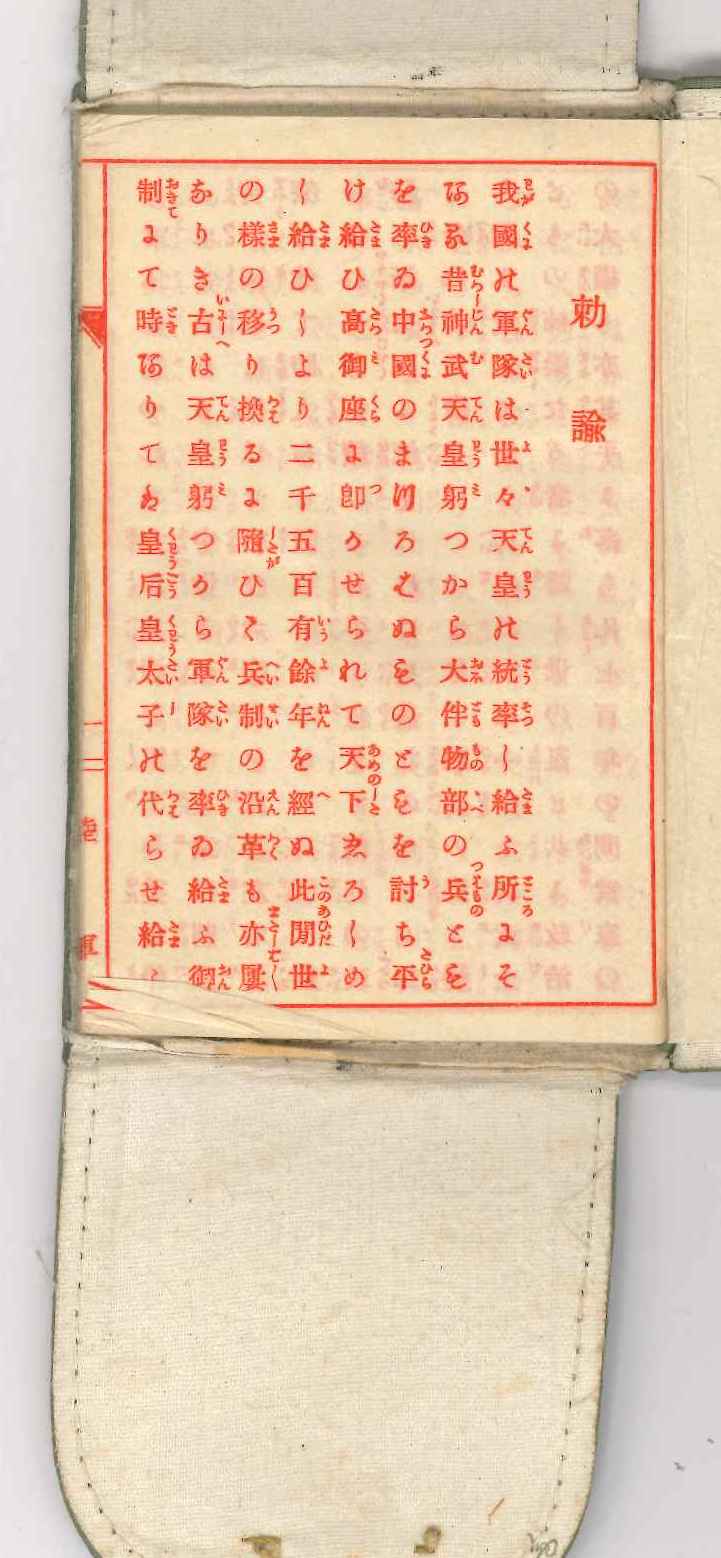 勅諭
我國の軍隊は世々天皇の統率し給ふ所にそ
ある昔神武天皇躬つから大伴物部の兵ともを
を率ゐ中國のまつろはぬものともを討ち平
け給ひ高御座に即かせられて天下しろしめ
し給ひしより二千五百有餘年を經ぬ此間世
の樣の移り換るに隨ひて兵制の沿革も亦屢
なりき古は天皇躬つから軍隊を率ゐ給ふ御
制にて時ありては皇后皇太子の代らせ給
二
陸
軍